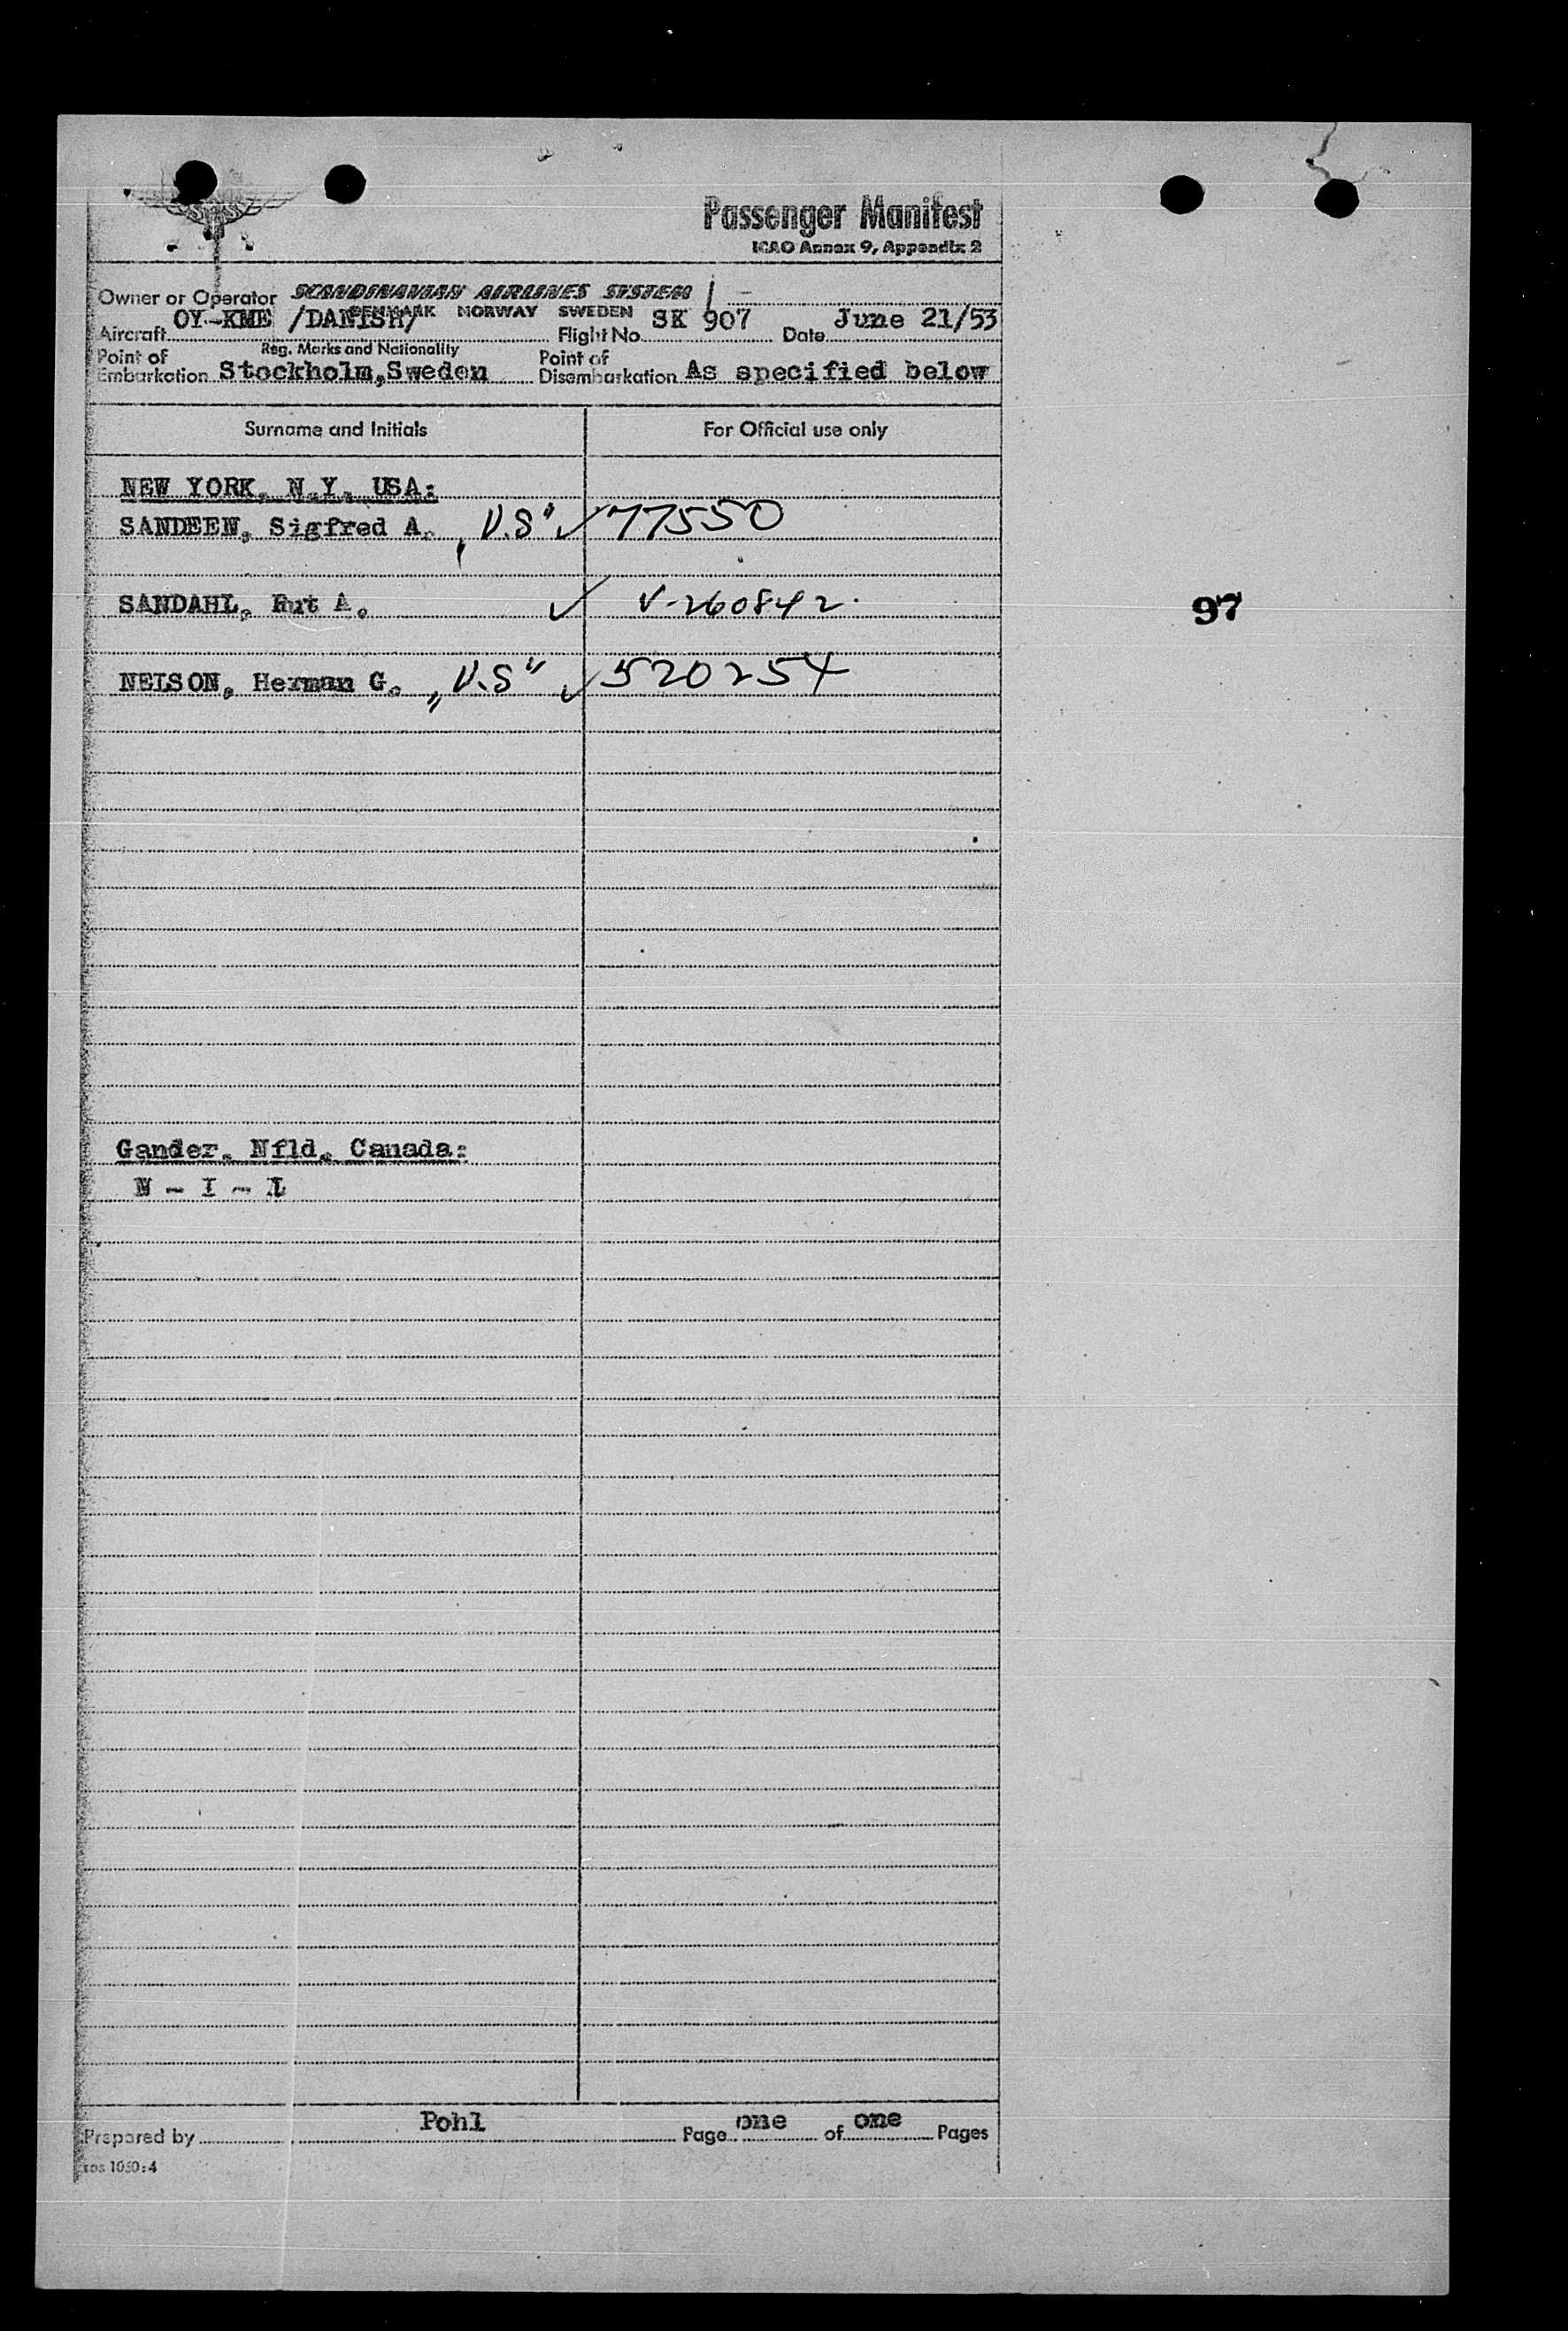 SAS
Passenger Manifest
ICAO Annex 9, Appendix 2
Owner or Operator SCANDINAVIAN AIRLINES SYSTEM
DENMARK NORWAY SWEDEN
Aircraft OY-KME /DANISH/ Flight No. SK 907 Date June 21/53
Reg. Marks and Nationality
Point of Embarkation Stockholm,Sweden Point of Disembarkation As specified below
Surname and Initials For Official use only
NEW YORK, N.Y. USA:
SANDEEN, Sigfred A. "U.S" ✓ 77550
SANDAHL, Rut A. ✓ V-260842.
97
NELSON, Herman G. "U.S" ✓ 520254
Gander, Nfld, Canada:
N - I - L
Prepared by Pohl Page one of one Pages
1050:4